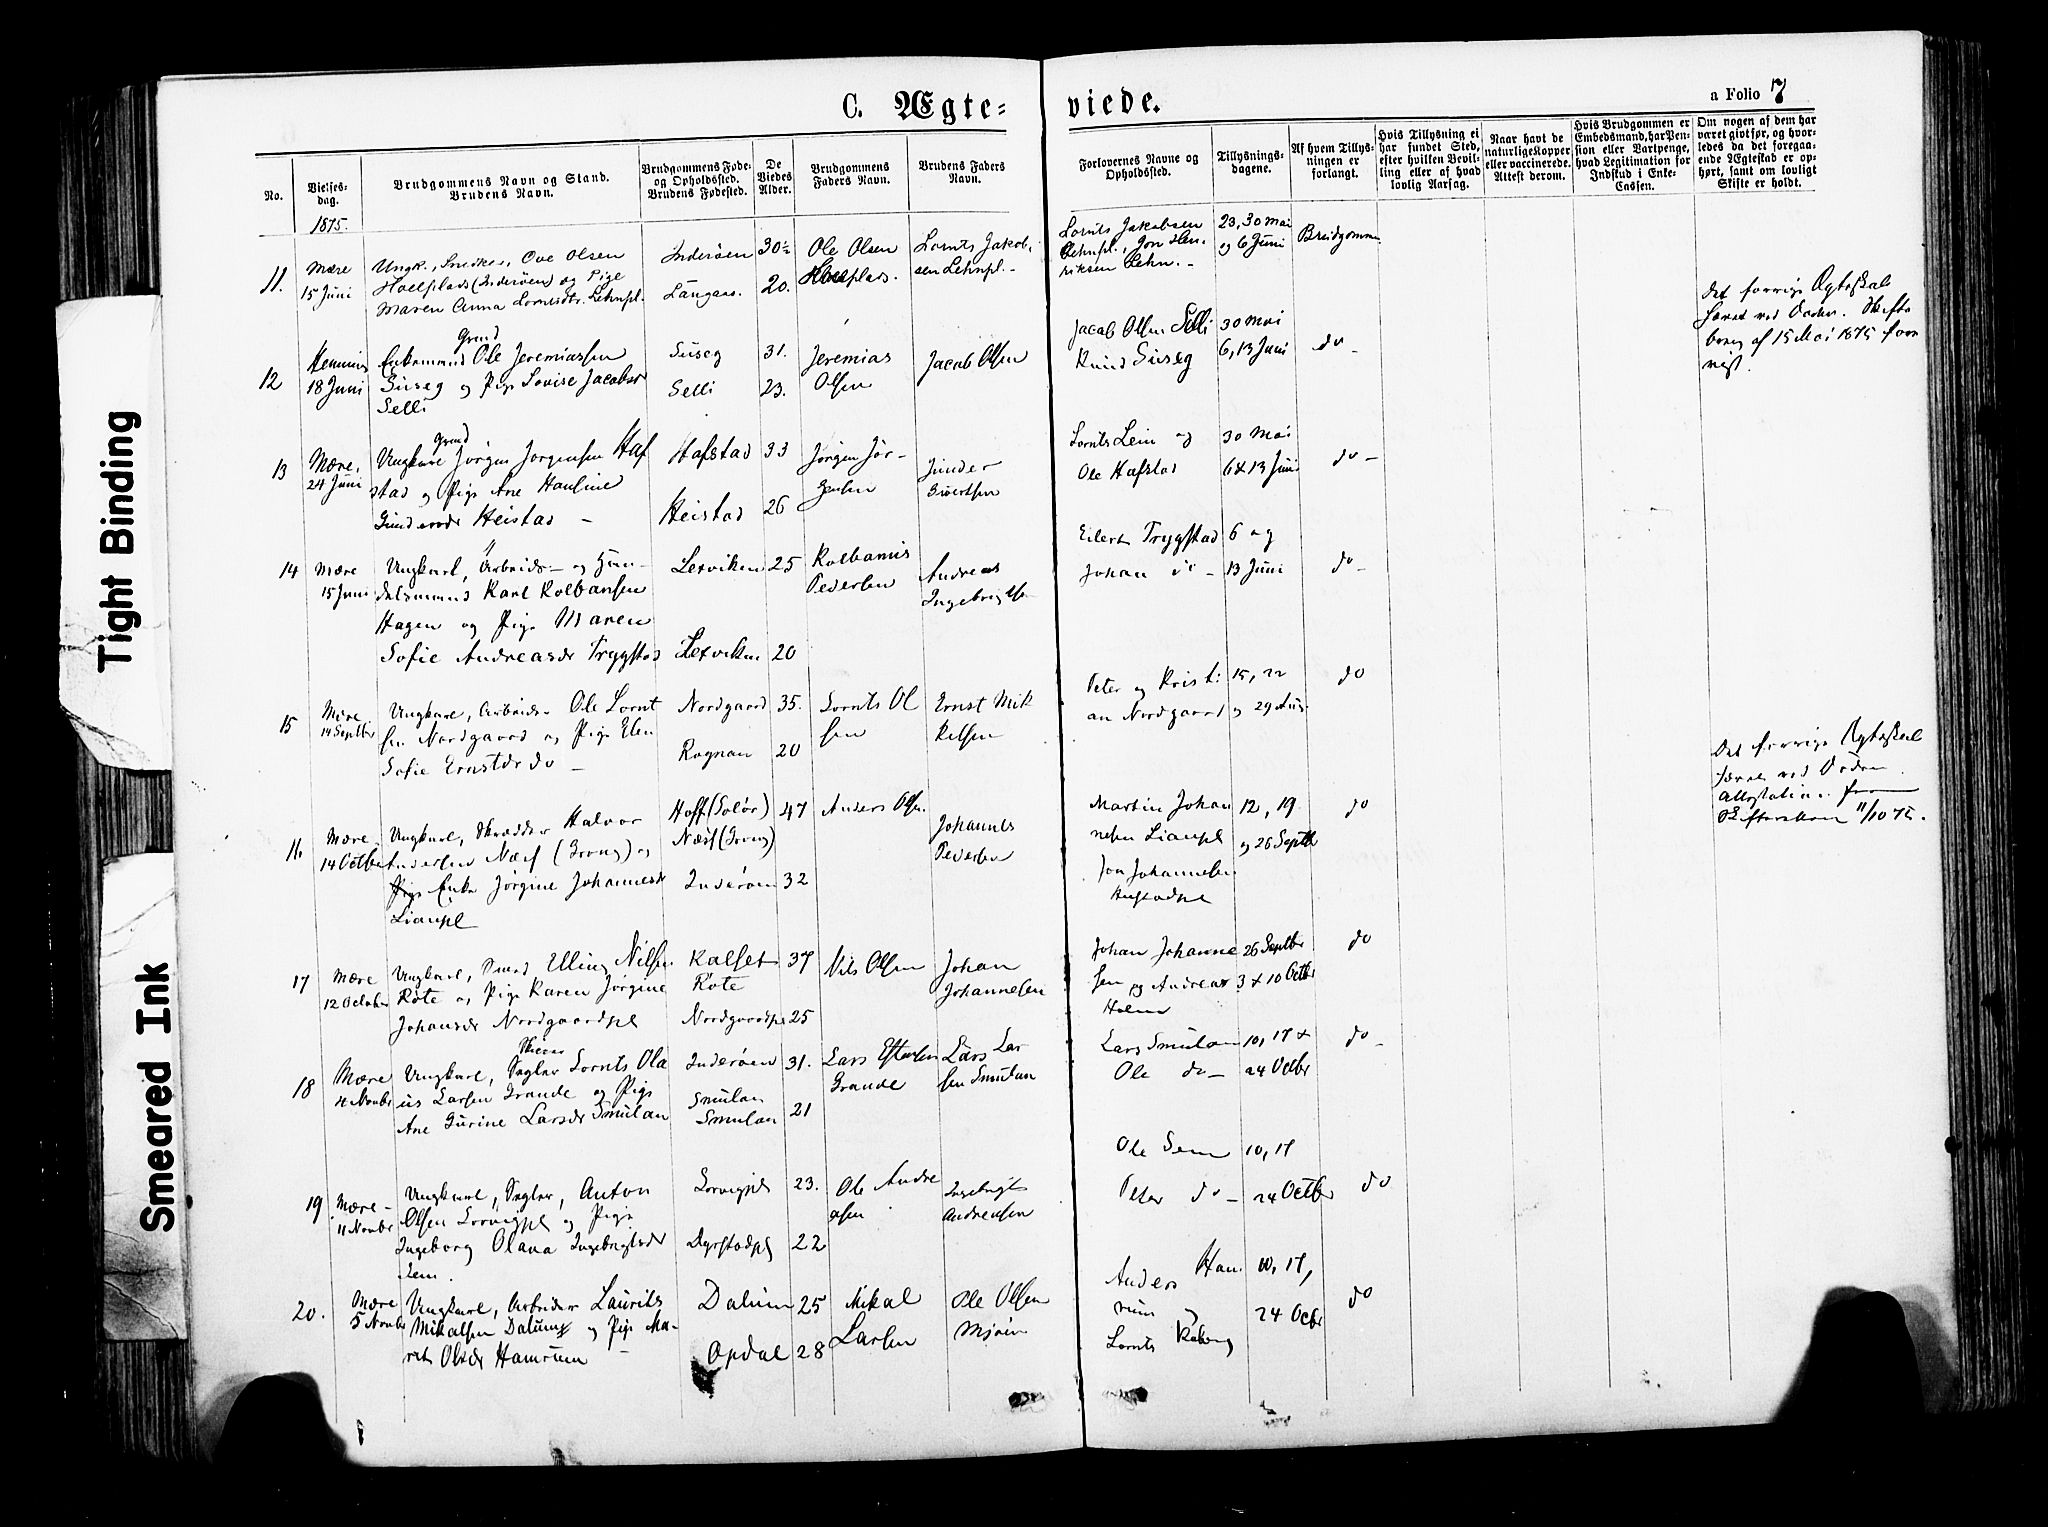 C. Ægte-
viede.
a Folio 7
No.
Vielses-
dag.
Brudgommens Navn og Stand.
Brudens Navn.
Brudgommens Føde-
og Opholdssted.
Brudens Fødested.
De
Viedes
Alder.
Brudgommens
Faders Navn.
Brudens Faders
Navn.
Forlovernes Navne og
Opholdssted.
Tillysnings-
dagene.
Af hvem Tillys-
ningen er
forlangt.
Hvis Tillysning ei
har fundet Sted,
efter hvilken Bevil-
ling eller af hvad
lovlig Aarsag.
Naar havt de
naturlige Kopper
eller vaccinerede.
Attest derom.
Hvis Brudgommen er
Embedsmand, har Pen-
sion eller Vartpenge,
hvad Legitimation for
Indskud i Enke-
Cassen.
Om nogen af dem har
været gift før, og hvor-
ledes da det foregaa-
ende Ægteskab er op-
hørt, samt om lovligt
Skifte er holdt.
1875.
11.
Mære
15 Juni
Ungk., Snedker, Ove Olsen
Hoelplads (Inderøen) og Pige
Maren Anna Lorntsdtr. Lehnpl.
Inderøen
Langaas.
30½
20.
Ole Olsen
Hoelplads.
Lornts Jakob-
sen Lehnpl.
Lornts Jakobsen
Lehnpl., Jon Hen-
riksen Lehn.
23, 30 Mai
og 6 Juni
Brudgommen
12
Henning
18 Juni
Grmd
Enkemand Ole Jeremiassen
Suseg og Pige Lovise Jacobsdr
Selli
Suseg
Selli
31.
23.
Jeremias
Olsen
Jacob Olsen
Jacob Olsen Selli
Knud Suseg
30 Mai
6, 13 Juni
do
Det forrige Ægteskab
hævet ved Døden. Skifte
brev af 15 Mai 1875 fore
vist.
13
Mære,
24 Juni
Grmd
Ungkarl Jørgen Jørgensen Haf
stad og Pige Ane Hansine
Gundersdr Heistad
Hafstad
Heistad
33
26
Jørgen Jør-
gensen
Gunder
Sivertsen
Lornts Lein og
Ole Hafstad
30 Mai
6 & 13 Juni
do
14
Mære
15 Juni
Ungkarl, Arbeids- og Han-
delsmand Karl Kolbansen
Hagen og Pige Maren
Sofie Andreasdr Trygstad
Lexviken
Lexviken
25
20
Kolbanus
Pedersen
Andreas
Ingebrigtsen
Eilert Trygstad
Johan do
6 og
13 Juni
do
15
Mære
14 Septbr
Ungkarl, Arbeider Ole Lornt
sen Nordgaard og Pige Elen
Sofie Ernstdr do
Nordgaard
Rognan
35.
20
Lornts Ol
sen
Ernst Mik
kelsen
Peter og Kristi
an Nordgaard
15, 22
og 29 Aug.
do
16
Mære
14 Octbr
Ungkarl, Skrædder Halvor
Andersen Næsf (Grong) og
Pige Enke Jørgine Johannesdr
Lianpl
Hoff (Solør)
Næsf (Grong)
Inderøen
47
32
Anders Olsen
Johannes
Pedersen
Martin Johan
nesen Lianpl
Jon Johannesen
12, 19
og 26 Septbr
do
Det forrige Ægteskab
hævet ved Døden
Attestation fra
Skifteretten 11/10 75.
17
Mære
12 October
Ungkarl, Smed Elling Nilsen
Røte og Pige Karen Jørgine
Johansdr Nordgaardpl
Kalset
Røte
Nordgaardpl
37
25
Nils Olsen
Johan
Johannesen
Johan Johanne
sen og Andreas
Holm
26 Septbr
3 & 10 Octbr
do
18
Mære
11 Novbr
Ungkarl, Sagbr Lornts Ola
us Larsen Grande og Pige
Ane Gurine Larsdr Smulan
Inderøen
Smulan
Smulan
31.
21
Lars
Grande
Lars Lar
sen Smulan
Lars Smulan
Ole do
10, 17 &
24 Octbr
do
19
Mære
11 Novbr
Ungkarl, Sagbr, Anton
Olsen Lorvigpl og Pige
Ingeborg Olava Ingebrigtsdr
Sem.
Lorvigpl
Dyrstadpl
23.
22
Ole Andre
asen
Ingebrigt
Andreasen
Ole Sem
Peter do
10, 17
24 Octbr
do
20.
Mære
5 Novbr
Ungkarl, Arbeider Laurits
Mikalsen Dalum og Pige Ma-
rit Olsdr Hamrum
Dalum
Opdal
25
28
Mikal
Larsen
Ole Olsen
Mjøen
Anders Ham
rum og
Lornts
10, 17,
24 Octbr
do
Tight Binding
Smeared Ink